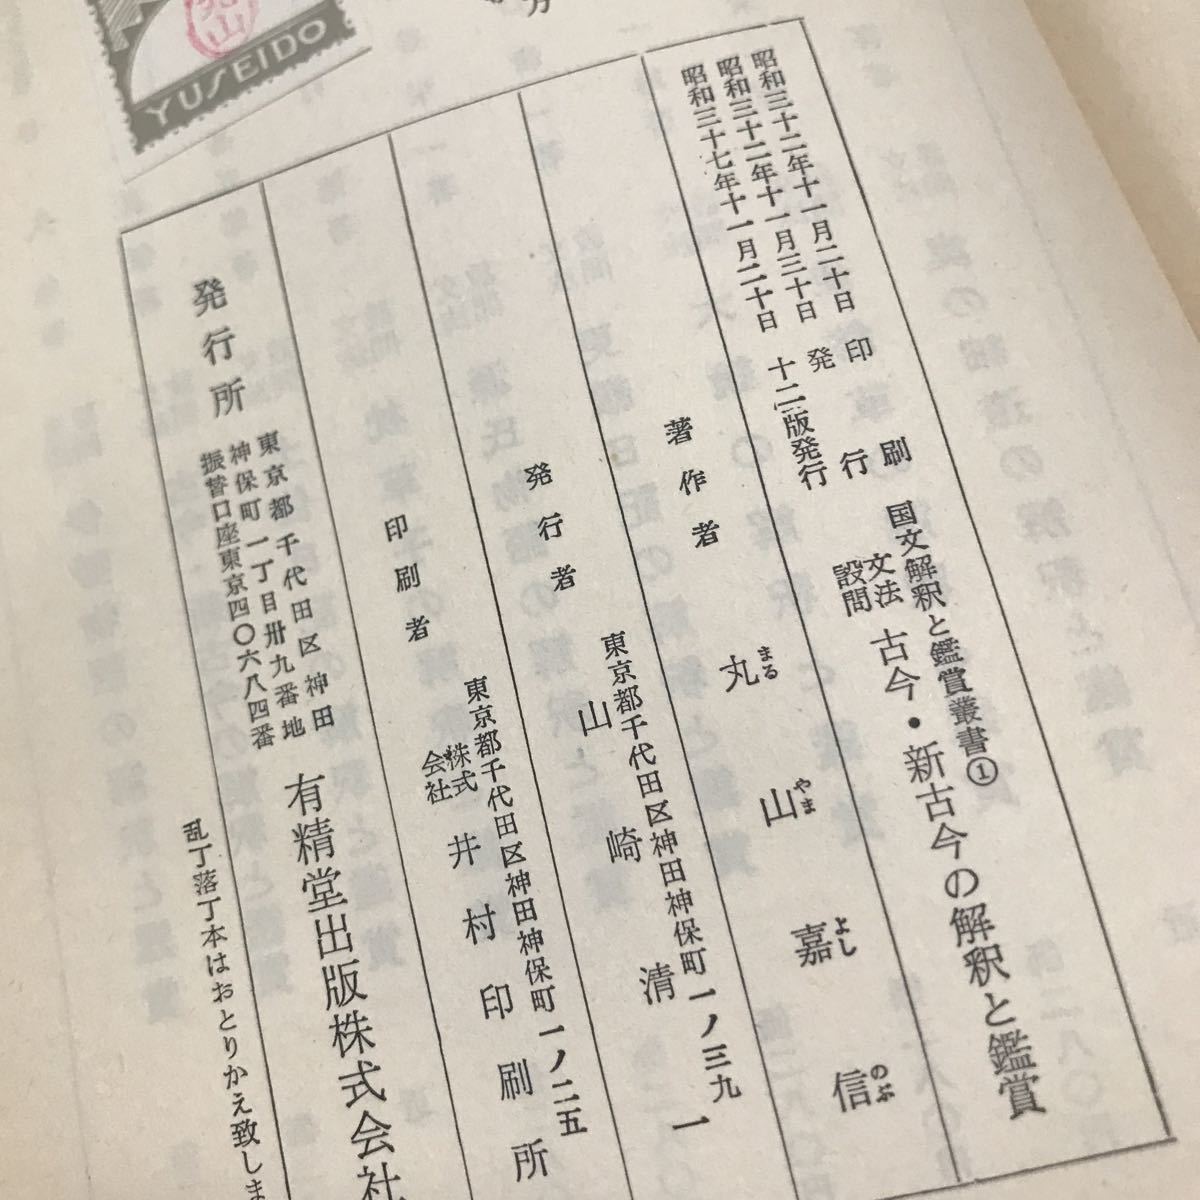 YUSEIDO
昭和三十二年十一月二十日 印刷
昭和三十二年十一月三十日 発行
昭和三十七年十一月二十日 十二版発行
国文解釈と鑑賞叢書①
文法
設問
古今・新古今の解釈と鑑賞
著作者 丸山嘉信
まる やま よし のぶ
東京都千代田区神田神保町一ノ三九
発行者 山崎清一
東京都千代田区神田神保町一ノ二五
印刷者 株式会社 井村印刷所
発行所
東京都千代田区神田
神保町一丁目卅九番地
振替口座東京四〇六八四番
有精堂出版株式会社
乱丁落丁本はおとりかえ致しま